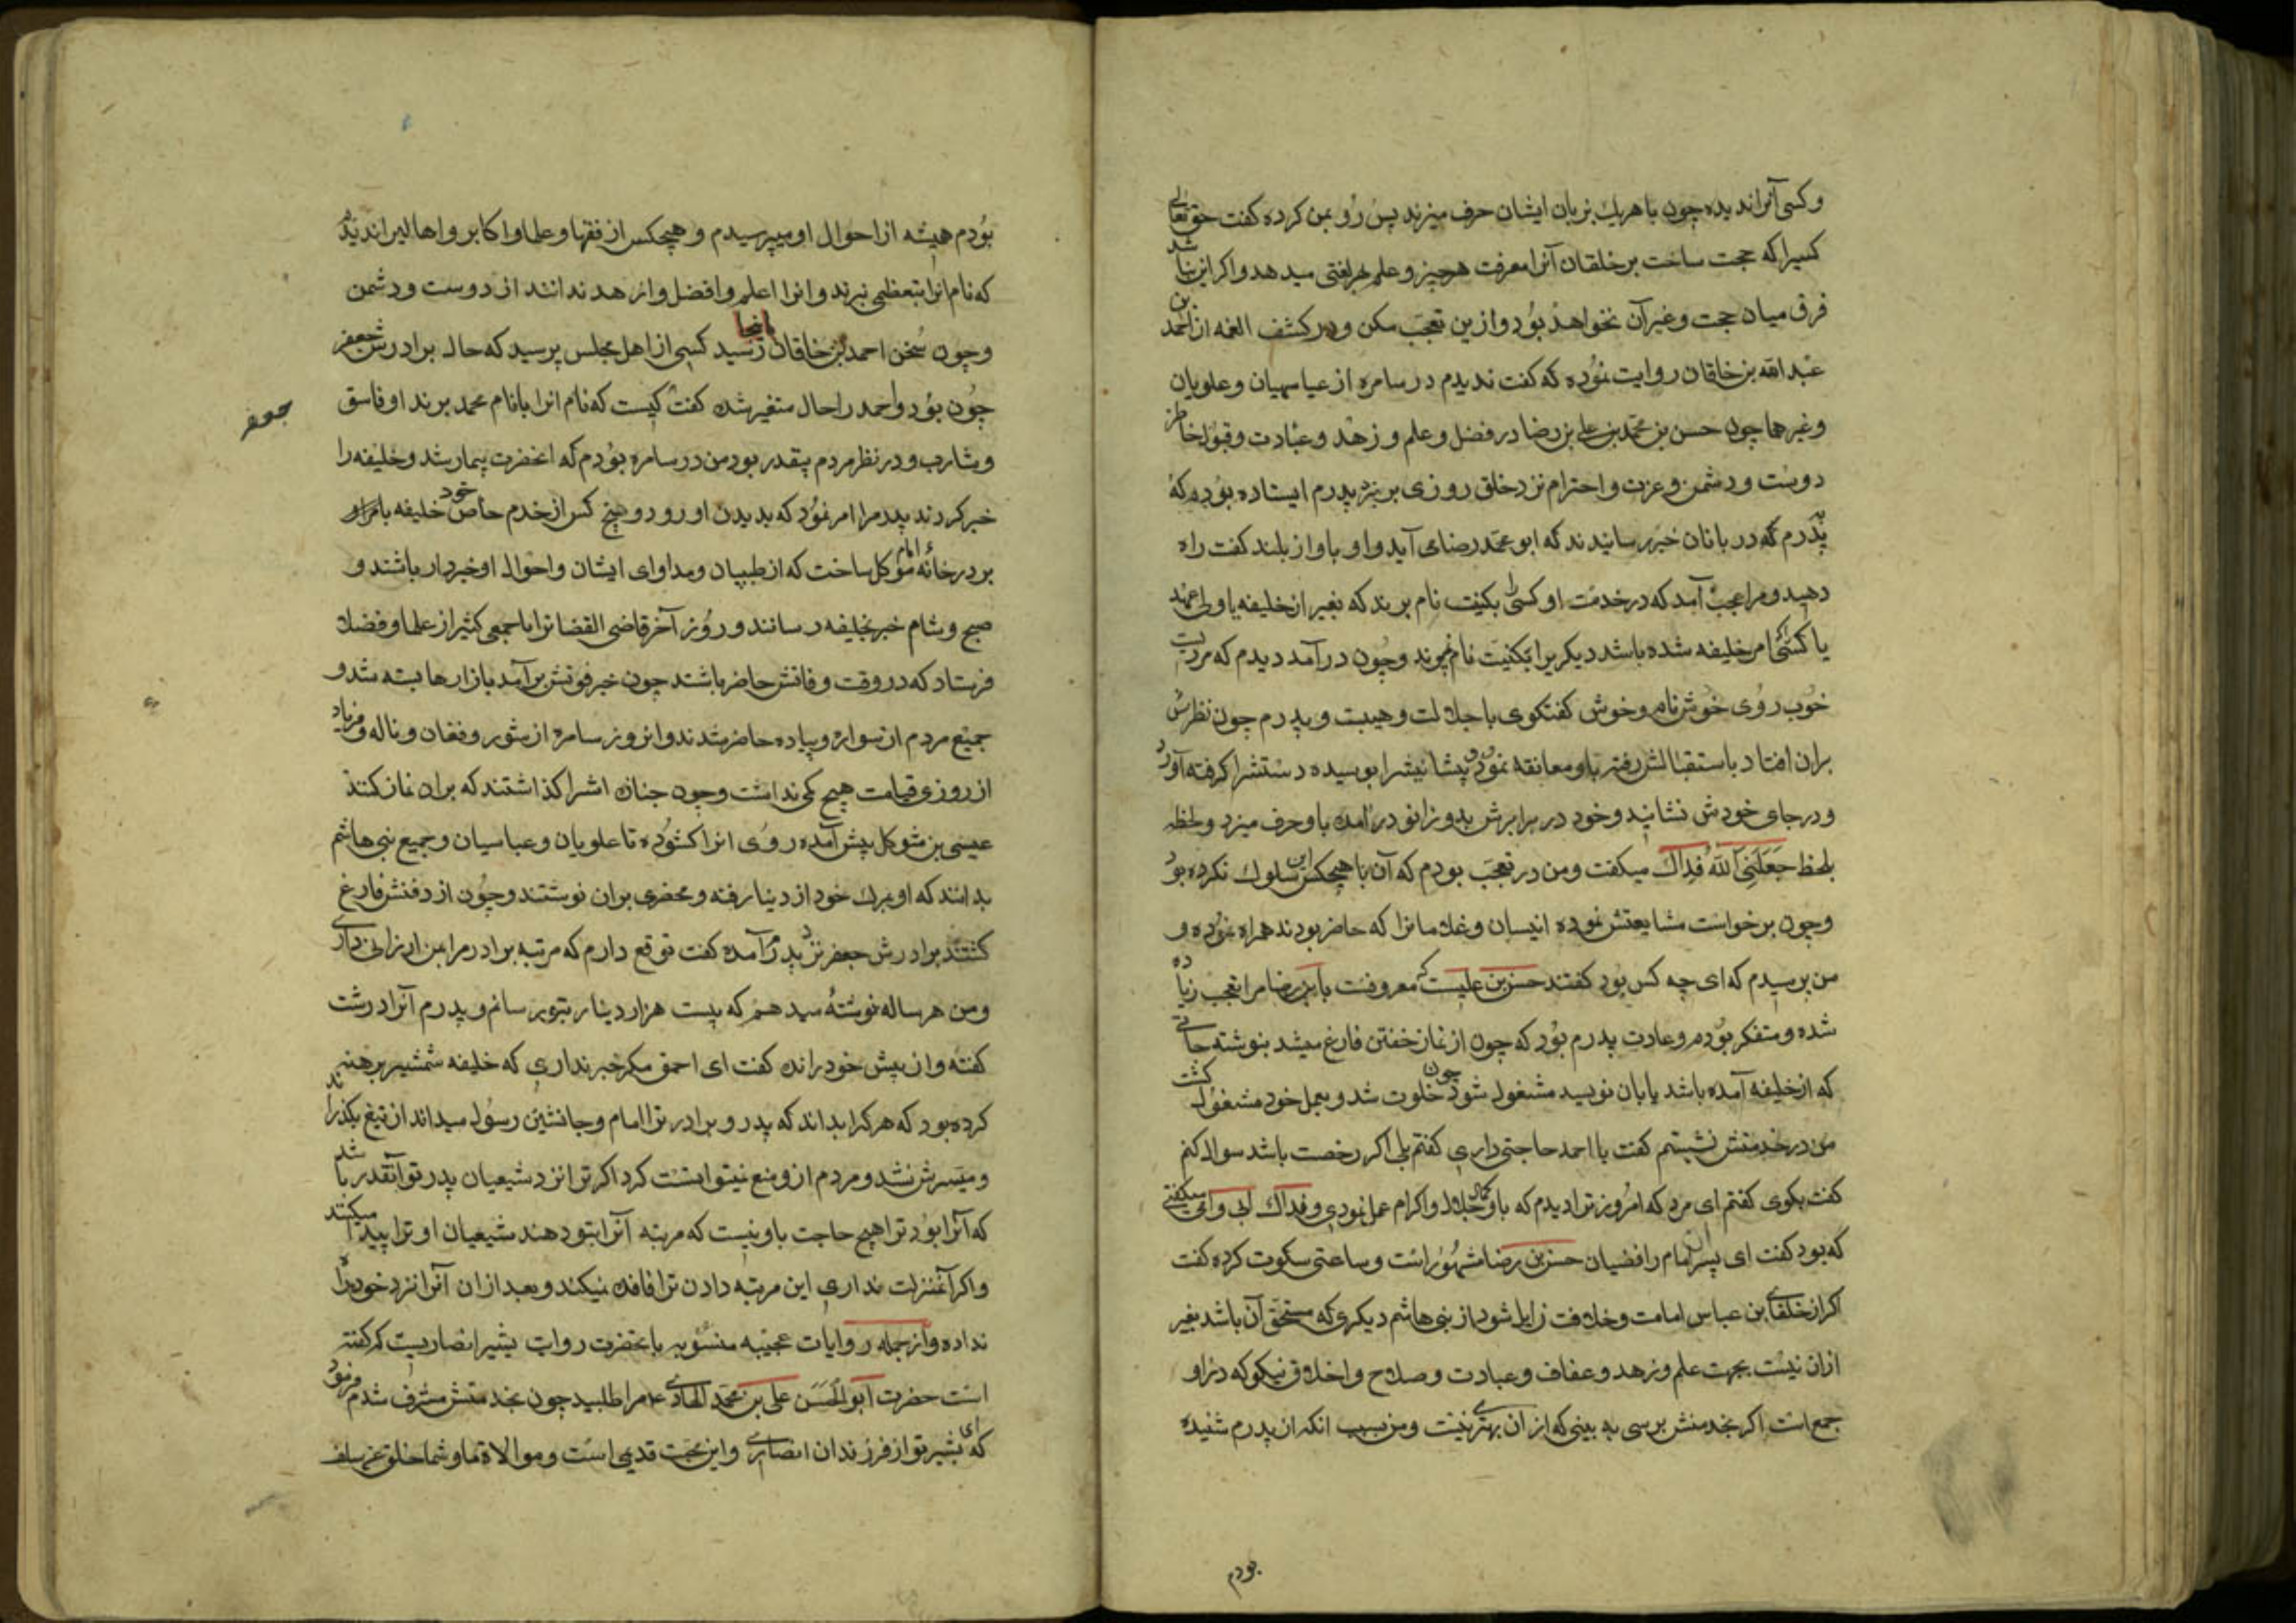 و کسی آنرا ندیده چون با هر یک بزبان ایشان حرف میزند پس رو بمن کرده کفت حق تعالی
کسیرا که حجت ساخت بر خلقان آنرا معرفت هر چیز و علم هر لغتی میدهد و اکر این نباشد
فرق میان حجت و غیر آن نخواهد بود و ازین تعجب مکن و در کشف الغمه از احمد بن
عبد الله بن خاقان روایت نموده که کفت ندیدم در سامره از عباسیان و علویان
و غیرها چون حسن بن محمد بن علی بن رضا در فضل و علم و زهد و عبادت و قبول خاطر
دوست و دشمن و عزت و احترام نزد خلق روزی بر نزد پدرم ایستاده بوده که
پدرم که دربانان خبر رسانیدند که ابو محمد رضا می آید و او باواز بلند کفت راه
دهید و مرا عجب آمد که در خدمت او کسی را بکنیت نام برند که بغیر از خلیفه یا ولی عهد
یا کسی که امر خلیفه شده باشد دیکریرا بکنیت نام نمیبرند و چون در آمد دیدم که مردیست
خوب روی خوش نام و خوش کفتکوی با جلالت و هیبت و پدرم چون نظرش
بران افتاد باستقبالش رفته باو معانقه نمود و پیشانیشرا بوسیده دستشرا کرفته آورد
و در جای خودش نشانید و خود در برابرش بدو زانو در آمده باو حرف میزد و لحظه
بلحظه جَعَلَنِی اللّهُ فِداکَ میکفت و من در تعجب بودم که آن با هیچکس این سلوک نکرده بود
و چون برخواست مشایعتش نموده انیسان و غلامانرا که حاضر بودند همراه نموده و
من پرسیدم که ای چه کس بود کفتند حسن بن علیست که معروفست بابن رضا مرا تعجب زیاده
شده و متفکر بودم و عادت پدرم بود که چون از نماز خفتن فارغ میشد بنوشته جاتی
که از خلیفه آمده باشد یا بان نویسید مشغول شود چون خلوت شد و بعمل خود مشغول کشت
من در خدمتش نشستم کفت یا احمد حاجتی داری کفتم بلی اکر رخصت باشد سوال کنم
کفت بکوی کفتم ای مرد که امروز ترا دیدم که باو کمال جلال و اکرام عمل نمودی و فداک ابی و امی میکفتی
که بود کفت ای پسر آن امام رافضیان حسن بن رضا مشهور است و ساعتی سکوت کرده کفت
اکر از خلفای بن عباس امامت و خلافت زایل شود از بنی هاشم دیکری که مستحق آن باشد بغیر
ازان نیست بجهت علم و زهد و عفاف و عبادت و صلاح و اخلاق نیکو که در او
جمع است اکر بخدمتش برسی به بینی که از آن بهتری نیست و من بسبب انکه از پدرم شنیده
بودم
بودم همیشه از احوال او میپرسیدم و هیچکس از فقها و علما و اکابر و اهالیرا ندیدم
که نام انرا بتعظیم نبرند و انرا اعلم و افضل و ازهد ندانند از دوست و دشمن
و چون سخن احمد بن خاقان باینجا رسید کسی از اهل مجلس پرسید که حال برادرش جعفر
چون بود و احمد را حال متغیر شده کفت کیست که نام انرا بانام محمد برند او فاسق
جعفر
و شارب و در نظر مردم بیقدر بود من در سامره بودم که انحضرت بیمار شد و خلیفه را
خبر کردند پدر مرا امر نمود که بدیدن او رود و پنج کس از خدم خاص خود خلیفه بامر او
بر در خانهٔ امام موکل ساخت که از طبیبان و مداوای ایشان و احوال او خبردار باشند و
صبح و شام خبر بخلیفه رسانند و روز آخر قاضی القضاترا با جمعی کثیر از علما و فضلا
فرستاد که در وقت وفاتش حاضر باشند چون خبر فوتش بر آمد بازارها بسته شد و
جمیع مردم از سواره و پیاده حاضر شدند و انروز سامره از شور و فغان و ناله و فریاد
از روزی قیامت هیچ کمی نداشت و چون جنازه اشرا کذاشتند که بران نماز کنند
عیسی بن متوکل پیش آمده روی انرا کشوده تا علویان و عباسیان و جمیع بنی هاشم
بدانند که او بمرک خود از دنیا رفته و محضری بران نوشتند و چون از دفنش فارغ
کشتند برادرش جعفر نزد پدرم آمده کفت توقع دارم که مرتبه برادر مرا بمن ارزانی داری
و من هر ساله نوشته میدهم که بیست هزار دینار بتو برسانم و پدرم آنرا درشت
کفته و از پیش خود رانده کفت ای احمق مکر خبر نداری که خلیفه شمشیر برهنه
کرده بود که هر کرا بداند که پدر و برادر ترا امام و جانشین رسول میداند از تیغ بکذراند
و میسرش نشد و مردم ازو منع نیتوانست کرد اکر ترا نزد شیعیان پدر تو آنقدر باشد
که آنرا بود ترا هیچ حاجت باو نیست که مرتبه آنرا بتو دهند شیعیان او ترا پیدا میکنند
و اکر آنمنزلت نداری این مرتبه دادن ترا فائده نمیکند و بعد ازان آنرا نزد خود راه
نداده و از جمله روایات عجیبه منسوبه بانحضرت روایت بشیر انصاریست که کفته
است حضرت ابو الحَسَن علی بن محمّد الهادی ع مرا طلبید چون بخدمتش مشرف شدم فرمود
که ای بشیر تو از فرزندان انصاری و این محبت قدیمی است و موالاة ما و شما خلق عن سلف